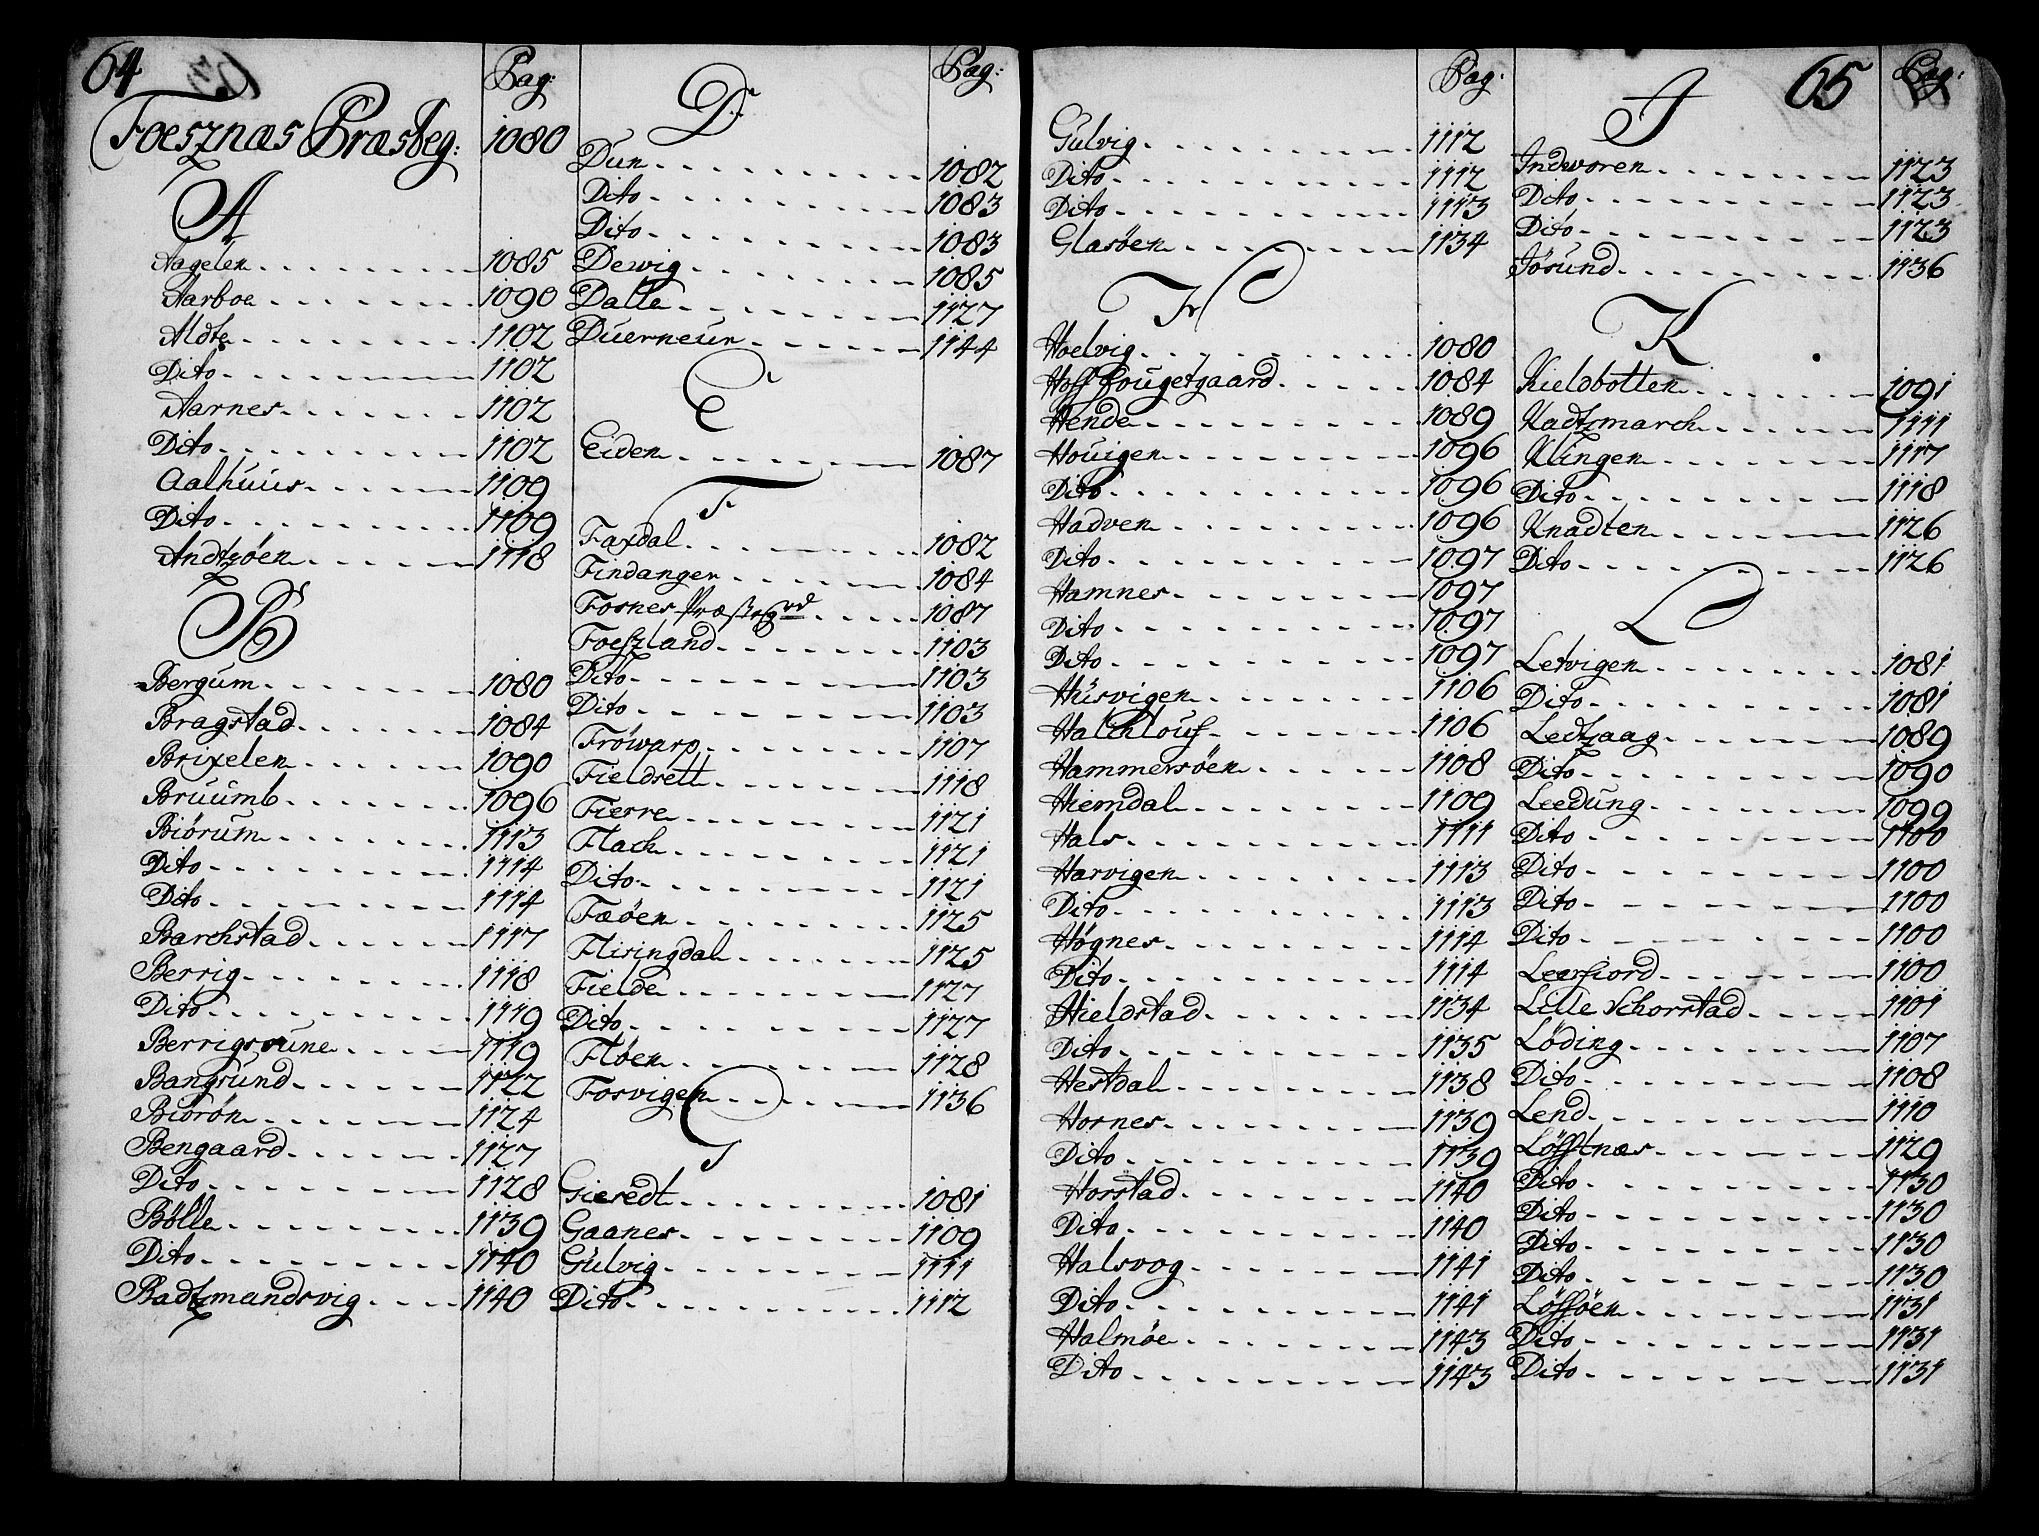 64
Pag:
Foesznæs Præsteg: 1080
A
Aagelen 1085
Aarboe 1090
Aldte 1102
Dito 1102
Aarnes 1102
Dito 1102
Aalhuus 1109
Dito 1109
Andtzöen 1118
B
Bergum 1080
Bragstad 1084
Brixelen 1090
Bruumb 1096
Biörum 1113
Dito 1114
Dito 1114
Barchstad 1117
Berrig 1118
Dito 1119
Berrigssune 1119
Bangsund 1122
Biörön 1124
Bengaard 1127
Dito 1128
Bölle 1139
Dito 1140
Badtzmandsvig 1140
Pag:
D
Dun 1082
Dito 1083
Dito 1083
Dewig 1085
Dalle 1127
Duerneur 1144
E
Eiden 1087
F
Faxdal 1082
Findanger 1084
Fosnes Præsteg rd 1087
Foeszland 1103
Dito 1103
Dito 1103
Fröwarp 1107
Fieldsett 1118
Fierre 1121
Flach 1121
Dito 1121
Fæöen 1125
Flisingdal 1125
Fielde 1127
Dito 1127
Flöen 1128
Fosvigen 1136
G
Giesedt 1081
Gaanes 1109
Gulvig 1111
Dito 1112
Pag:
Gulvig 1112
Dito 1112
Dito 1113
Glasöen 1134
H
Hoelvig 1080
Hoff Fougetgaard 1084
Hende 1089
Houigen 1096
Dito 1096
Hadven 1096
Dito 1097
Hamnes 1097
Dito 1097
Dito 1097
Husvigen 1106
Halchlouf 1106
Hammersöen 1108
Hiemdal 1109
Hals 1111
Harvigen 1113
Dito 1113
Högnes 1114
Dito 1114
Hieldstad 1134
Dito 1135
Hestdal 1138
Hornes 1139
Dito 1139
Horstad 1140
Dito 1140
Halsvog 1141
Dito 1141
Halmöe 1143
Dito 1143
65
Pag:
I
Indworen 1123
Dito 1123
Dito 1123
Iösund 1136
K
Kielsbotten 1091
Kadtzmarch 1111
Klingen 1117
Dito 1118
Knadten 1126
Dito 1126
L
Letvigen 1081
Dito 1081
Ledtzaag 1089
Dito 1090
Leedung 1099
Dito 1100
Dito 1100
Dito 1100
Dito 1100
Leerfiord 1100
Lille Schorstad 1101
Löding 1107
Dito 1108
Lend 1110
Löfftnæs 1129
Dito 1130
Dito 1130
Dito 1130
Dito 1130
Löfföen 1131
Dito 1131
Dito 1131